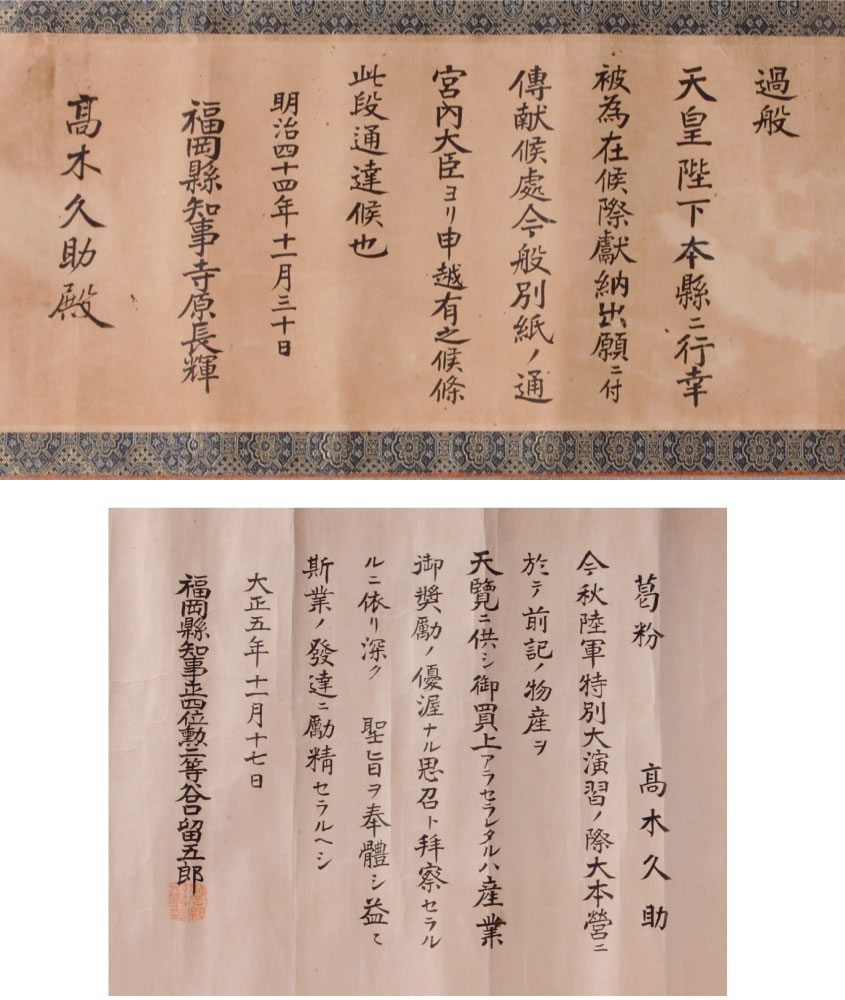 過般
天皇陛下本縣ニ行幸
被為在候際獻納出願ニ付
傳献候處今般別紙ノ通
宮內大臣ヨリ申越有之候條
此段通達候也
明治四十四年十一月三十日
福岡縣知事寺原長輝
髙木久助殿
葛粉　髙木久助
今秋陸軍特別大演習ノ際大本營ニ
於テ前記ノ物産ヲ
天覽ニ供シ御買上アラセラレタルハ産業
御奬勵ノ優渥ナル思召ト拜察セラル
ルニ依リ深ク　聖旨ヲ奉體シ益々
斯業ノ發達ニ勵精セラルヘシ
大正五年十一月十七日
福岡縣知事正四位勲二等谷口留五郎